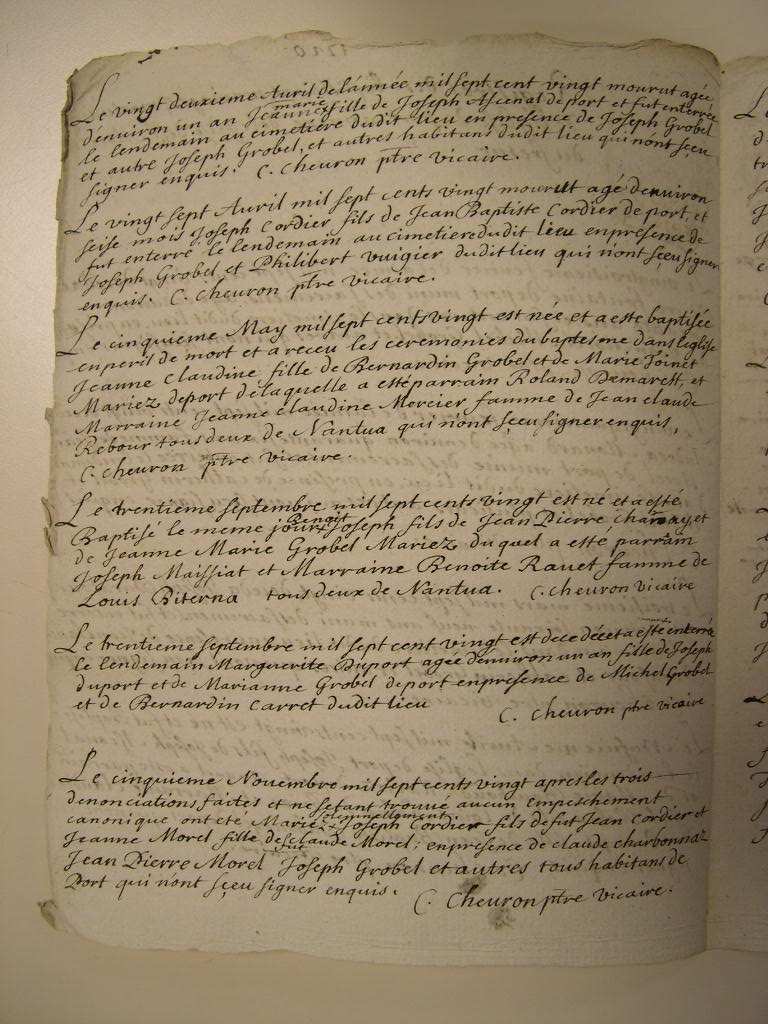 1720
Le vingt deuxieme Auril de lánnée mil sept cent vingt mourut agée
dénuiron un an Jeanne marie fille de Joseph Ascenal de port et fut enterrée
le lendemain au cimetière dudit lieu en presence de Joseph Grobel
et autre Joseph Grobel, et autres habitans dudit lieu qui nónt sçeu
signer enquis. C. Cheuron ptre vicaire.
Le vingt sept Auril mil sept cents vingt mourut agé dénuiron
seise mois Joseph Cordier fils de Jean Baptiste Cordier de port, et
fut enterré le lendemain au cimetiere dudit lieu en présence de
Joseph Grobel et Philibert vuigier dudit lieu qui nónt sçeu signer
enquis. C. Cheuron ptre vicaire.
Le cinquieme May mil sept cents vingt est née et a este baptisée
en peris de mort et a receu les ceremonies du baptesme dans léglise
Jeanne Claudine fille de Bernardin Grobel et de Marie Joinet
Mariez de port de laquelle a esté parrain Roland Demarest, et
Marraine Jeanne Claudine Mercier famme de Jean claude
Rebour tous deux de Nantua qui nónt sçeu signer enquis,
C. Cheuron ptre vicaire.
Le trentieme septembre mil sept cents vingt est né et a esté
Baptisé le meme jour Benoit Joseph fils de Jean Pierre Charnay, et
de Jeanne Marie Grobel Mariez du quel a esté parrain
Joseph Maissiat et Marraine Benoite Rauet famme de
Louis Biterna tous deux de Nantua. C. Cheuron vicaire
Le trentieme septembre mil sept cent vingt est decedée et a esté enterrée
le lendemain Marguerite Duport agée dénuiron un an fille de Joseph
duport et de Marianne Grobel de port en presence de Michel Grobel
et de Bernardin Carret dudit lieu C. Cheuron ptre vicaire
Le cinquieme Nouembre mil sept cents vingt apres les trois
denonciations faites et ne sétant trouué aucun empeschement
canonique ont été Mariez solemnellement Joseph Cordier fils de fut Jean Cordier et
Jeanne Morel fille de fut Claude Morel; en presence de claude charbonnaz
Jean Pierre Morel Joseph Grobel et autres tous habitans de
Port qui nónt sçeu signer enquis. C. Cheuron ptre vicaire.